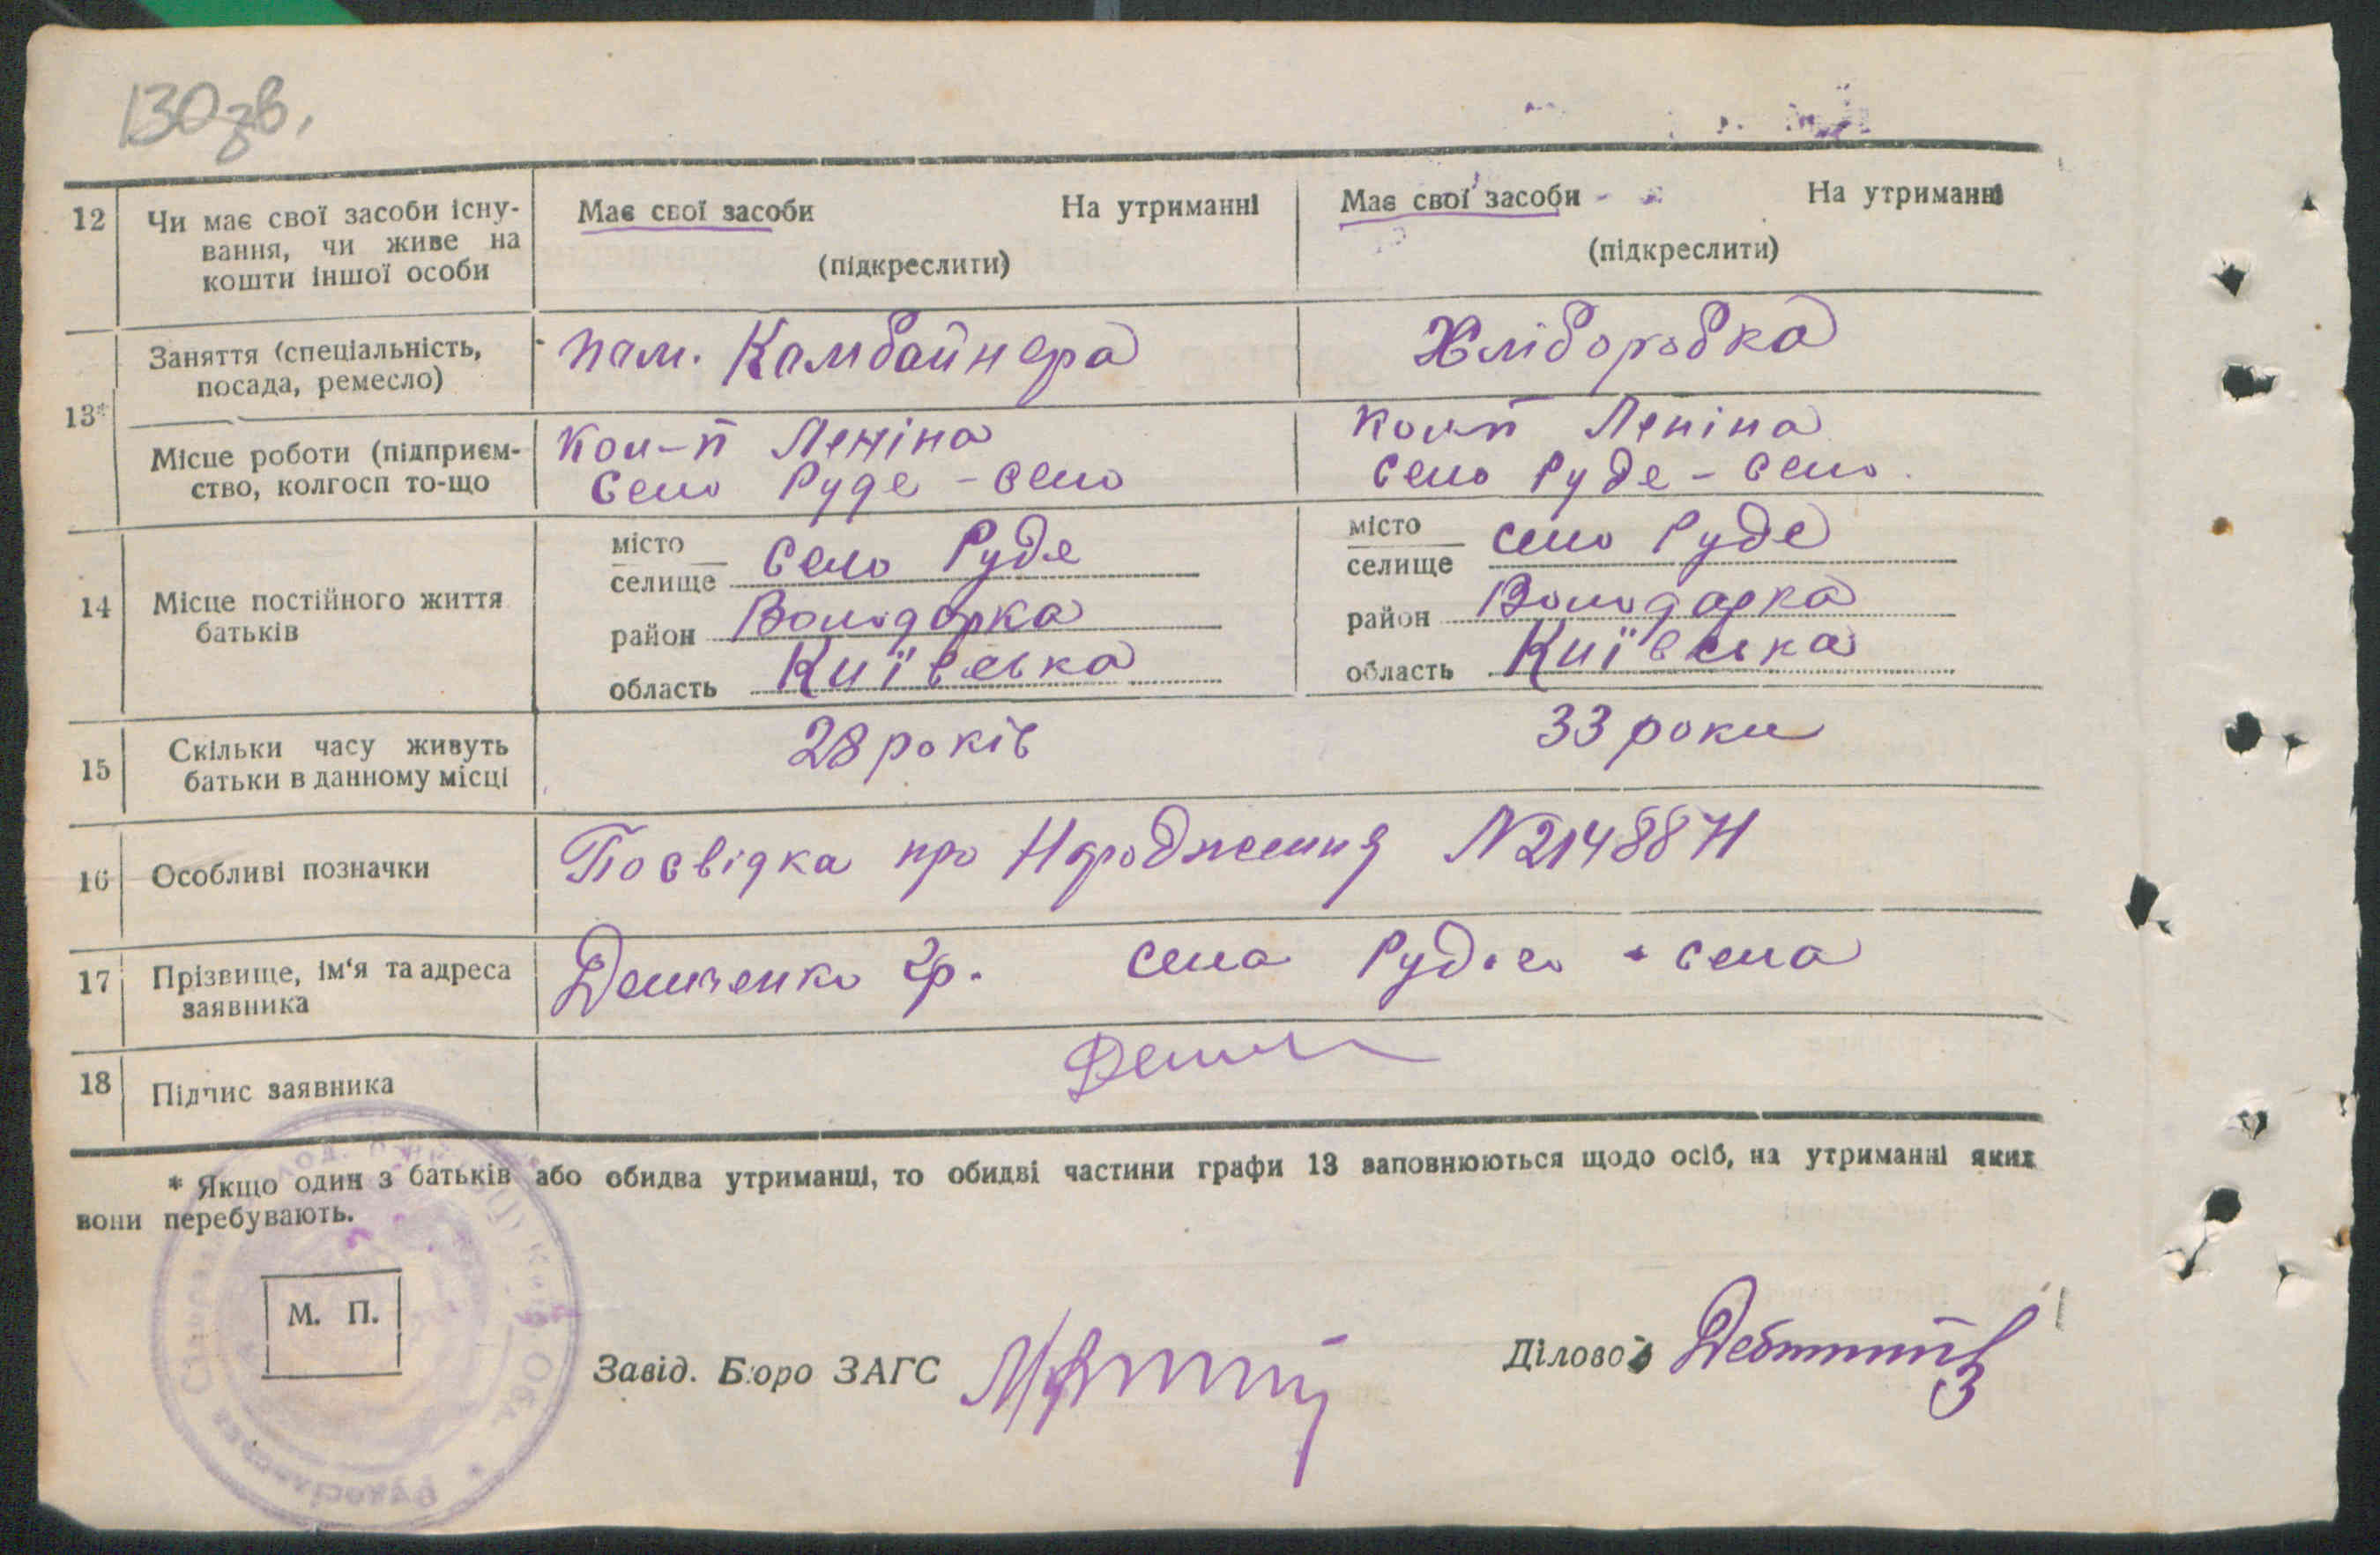 130зв.
12 Чи має свої засоби існу-
вання, чи живе на
кошти іншої особи
Має свої засоби На утриманні
(підкреслити)
Має свої засоби На утриманні
(підкреслити)
13*
Заняття (спеціальність,
посада, ремесло)
пом. Комбайнера
Хліборобка
Місце роботи (підприєм-
ство, колгосп то-що
Кол-п Леніна
село Руде-село
Кол-п Леніна
село Руде-село.
14 Місце постійного життя
батьків
місто
селище Село Руде
район Володарка
область Київська
місто
селище село Руде
район Володарка
область Київська
15 Скільки часу живуть
батьки в данному місці
28 років
33 роки
16 Особливі позначки
Посвідка про Народження №
17 Прізвище, ім'я та адреса
заявника
Демченко Гр. села Рудого села
18 Підпис заявника
* Якщо один з батьків або обидва утриманці, то обидві частини графи 13 заповнюються щодо осіб, на утриманні яких
вони перебувають.
М. П.
Завід. Бюро ЗАГС
Діловод